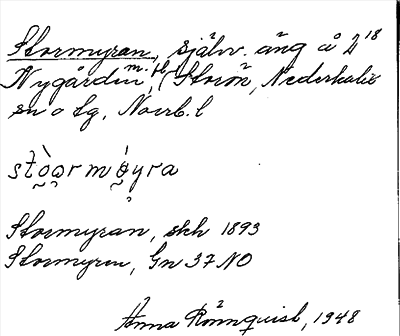 Stormyran, självv. äng å 2 18
Nygården m. fl., (Storön, Nederkalix
sn o tg, Norrb. l
stòərmỳra
Stormyran, skh 1893
Stormyren, Gn 37 NO
Anna Rönnquist, 1948